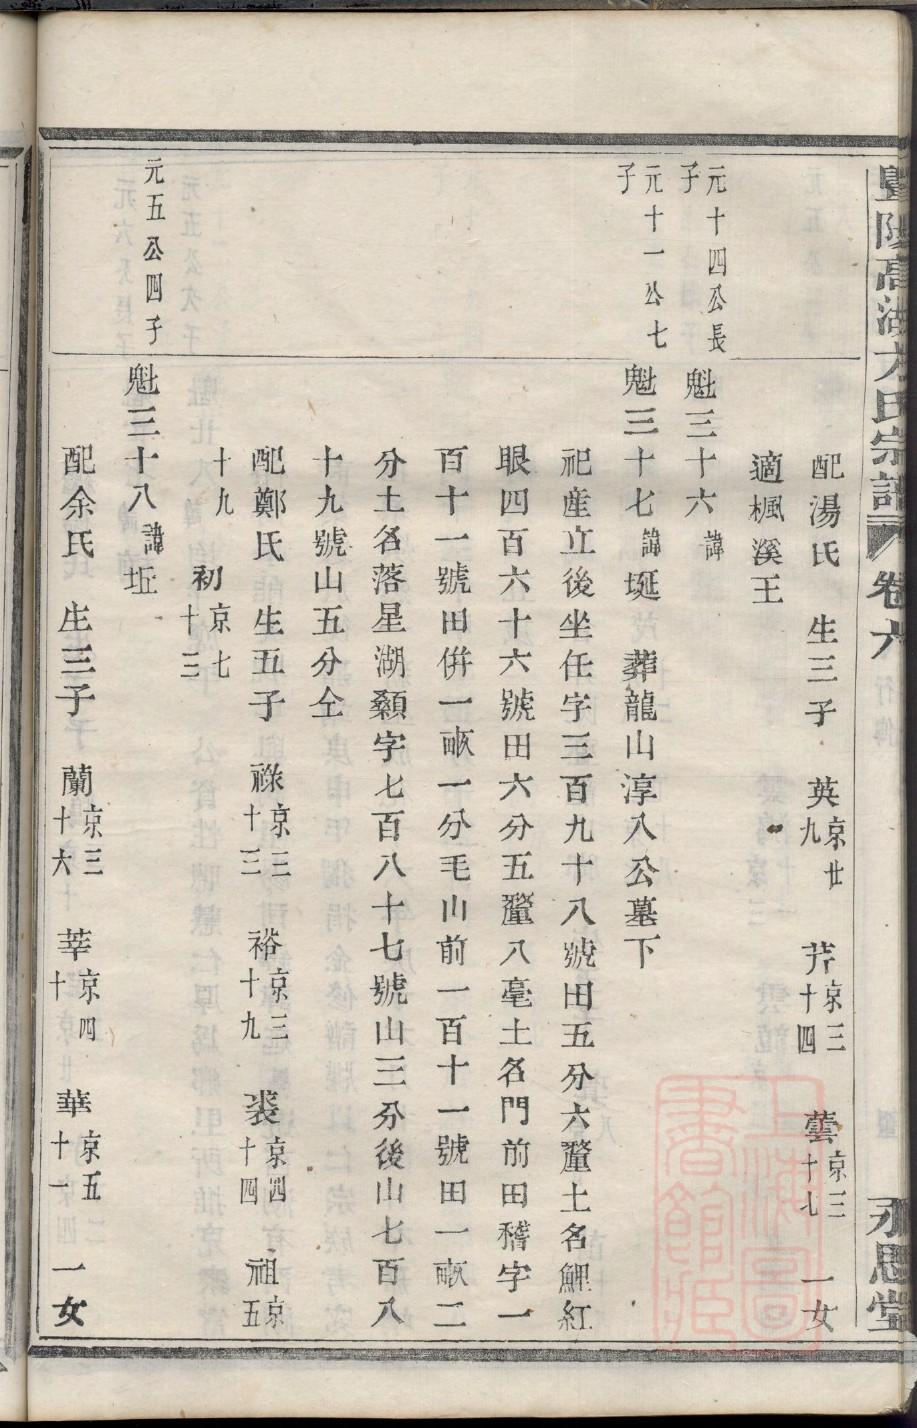 暨陽高湖方氏宗譜 卷六 永思堂
配湯氏 生三子 英京廿九 芹京三十四 蕓京三十七 一女
適楓溪王
元十四公長子 魁三十六諱
元十一公七子 魁三十七諱埏 葬龍山淳八公墓下
祀産立後坐任字三百九十八號田五分六釐土名鯉紅
眼四百六十六號田六分五釐八毫土名門前田稽字一
百十一號田併一畝一分毛山前一百十一號田一畝二
分土名落星湖顙字七百八十七號山三分後山七百八
十九號山五分仝
配鄭氏 生五子 祿京二十三 裕京三十九 裘京四十四 祖京五
十九 初京七十三
元五公四子 魁三十八諱坵
配余氏 生三子 蘭京三十六 莘京四十 華京五十一 一女